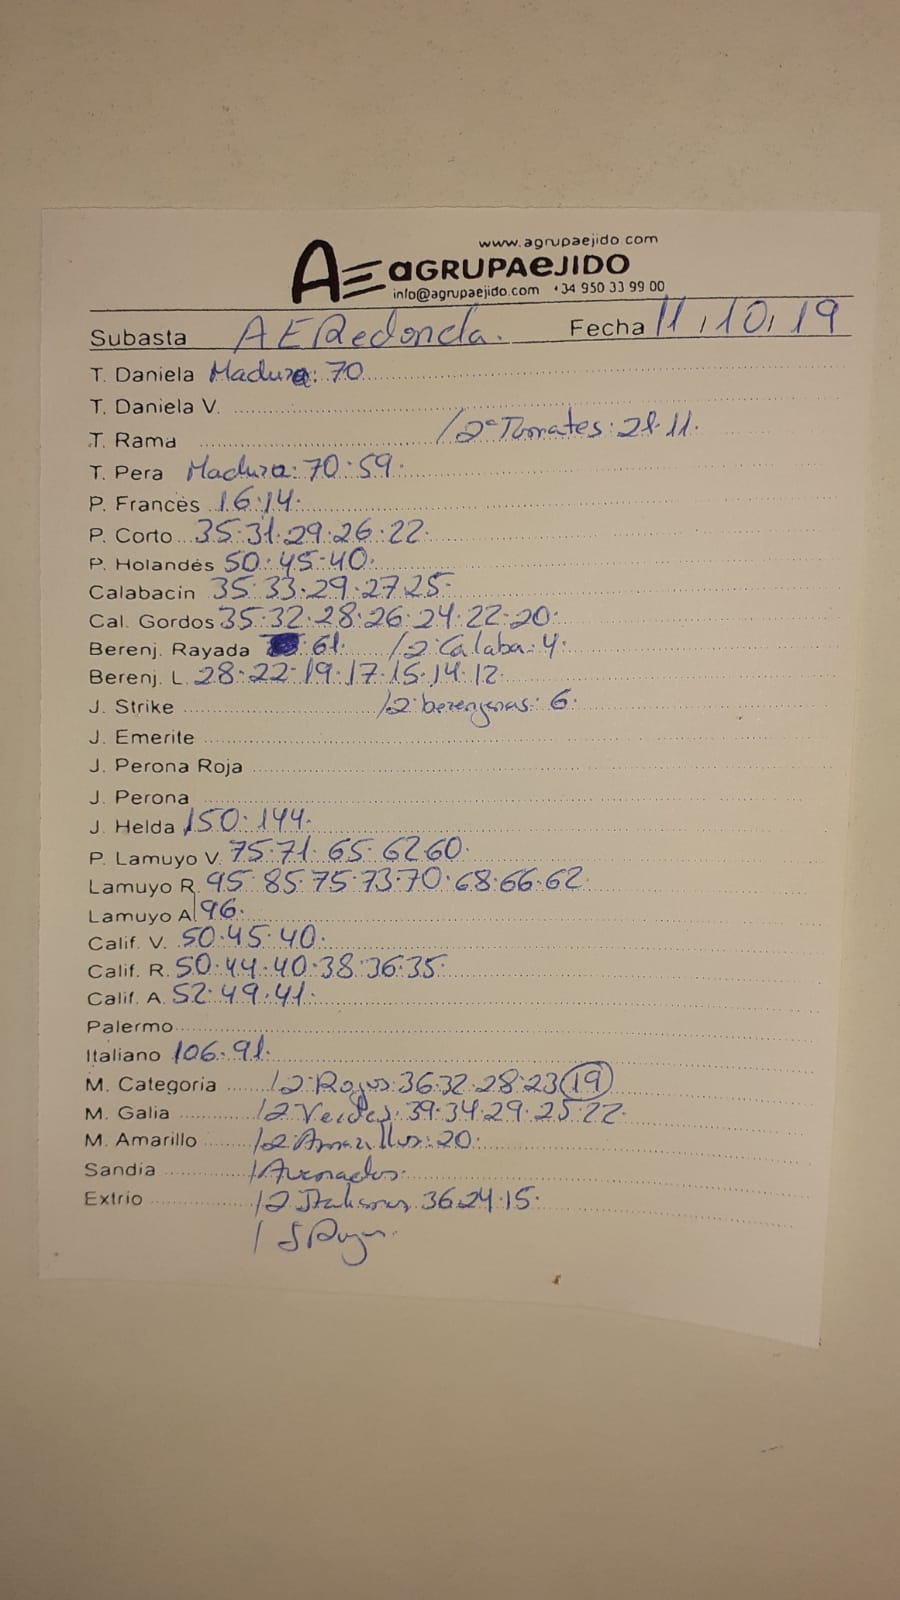 www.agrupaejido.com
AE aGRUPAeJIDO
info@agrupaejido.com +34 950 33 99 00
Subasta AERedonda. Fecha 11, 10, 19
T. Daniela Madura: 70
T. Daniela V.
T. Rama /2ª Tomates: 21. 11.
T. Pera Madura: 70. 59.
P. Francés 16. 14.
P. Corto 35. 31. 29. 26. 22.
P. Holandés 50. 45. 40.
Calabacin 35. 33. 29. 27 25.
Cal. Gordos 35. 32. 28. 26. 24. 22. 20.
Berenj. Rayada 61. /2ª Calaba: 4.
Berenj. L. 28. 22. 19. 17. 15. 14. 12.
J. Strike /2ª berenjenas: 6.
J. Emerite
J. Perona Roja
J. Perona
J. Helda 150. 144.
P. Lamuyo V. 75. 71. 65. 62 60.
Lamuyo R. 95. 85. 75. 73. 70. 68. 66. 62.
Lamuyo A 96.
Calif. V. 50. 45. 40.
Calif. R. 50. 44. 40. 38. 36. 35.
Calif. A. 52. 49. 41.
Palermo
Italiano 106. 91.
M. Categoria /2ª Rojos: 36 32. 28. 23 19
M. Galia /2ª Verdes: 39. 34. 29. 25. 22.
M. Amarillo /2ª Amarillos: 20.
Sandia
Extrio /2 Italianos 36. 24. 15.